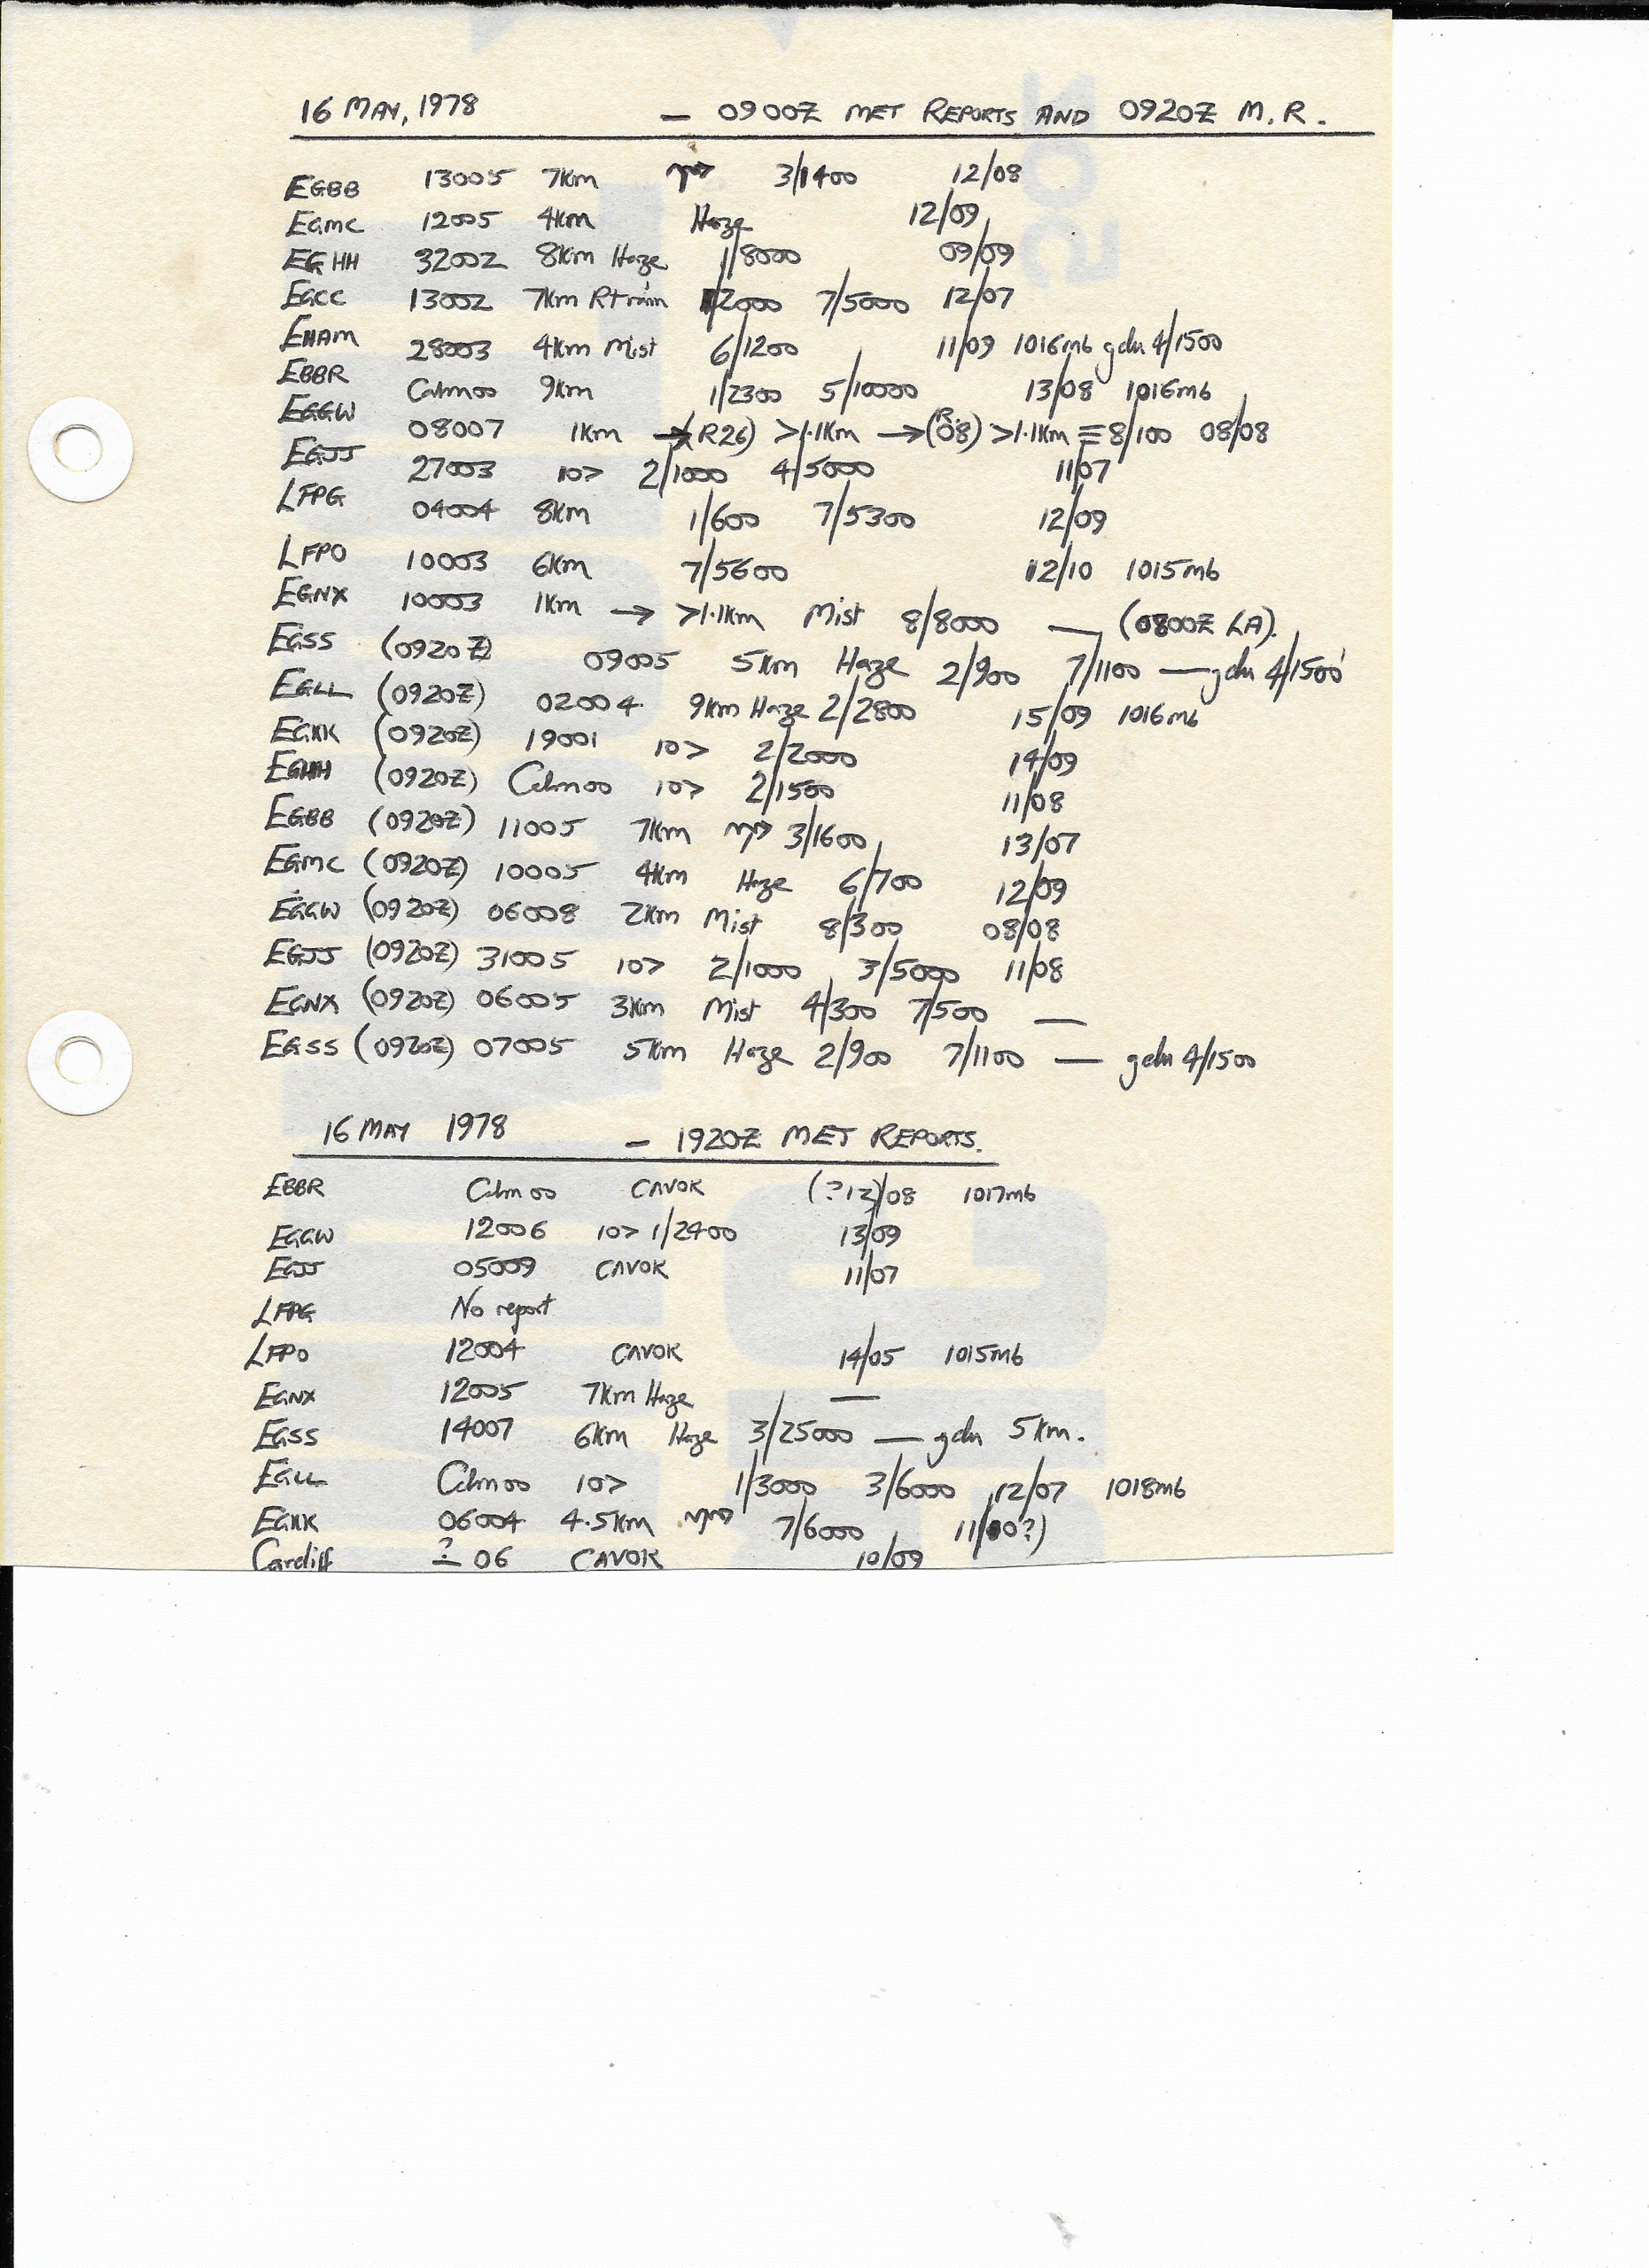 16 MAY, 1978 — 0900Z MET REPORTS AND 0920Z M.R.
EGBB 13005 7Km 3/1400 12/08
EGMC 12005 4Km Haze 12/09
EGHH 32002 8Km Haze 1/8000 09/09
EGCC 13002 7Km Rt rain 1/2000 7/5000 12/07
EHAM 28003 4Km Mist 6/1200 11/09 1016mb gdu 4/1500
EBBR Calm00 9Km 1/2300 5/10000 13/08 1016mb
EGGW 08007 1Km → (R26) >1.1Km → (R.08) >1.1Km ≡ 8/100 08/08
EGJJ 27003 10> 2/1000 4/5000 11/07
LFPG 04004 8Km 1/600 7/5300 12/09
LFPO 10003 6Km 7/5600 12/10 1015mb
EGNX 10003 1Km → >1.1Km Mist 8/8000 — (0800Z LA).
EGSS (0920Z) 09005 5Km Haze 2/900 7/1100 — gdu 4/1500
EGLL (0920Z) 02004 9Km Haze 2/2800 15/09 1016mb
EGKK (0920Z) 19001 10> 2/2000 14/09
EGHH (0920Z) Calm00 10> 2/1500 11/08
EGBB (0920Z) 11005 7Km 3/1600 13/07
EGMC (0920Z) 10005 4Km Haze 6/700 12/09
EGGW (0920Z) 06008 2Km Mist 8/300 08/08
EGJJ (0920Z) 31005 10> 2/1000 3/5000 11/08
EGNX (0920Z) 06005 3Km Mist 4/300 7/500 —
EGSS (0920Z) 07005 5Km Haze 2/900 7/1100 — gdu 4/1500
16 MAY 1978 — 1920Z MET REPORTS.
EBBR Calm00 CAVOK (?12)/08 1017mb
EGGW 12006 10> 1/2400 13/09
EGJJ 05009 CAVOK 11/07
LFPG No report
LFPO 12004 CAVOK 14/05 1015mb
EGNX 12005 7Km Haze —
EGSS 14007 6Km Haze 3/25000 — gdu 5Km.
EGLL Calm00 10> 1/3000 3/6000 12/07 1018mb
EGKK 06004 4.5Km 7/6000 11/(00?)
Cardiff ?— 06 CAVOK 10/09